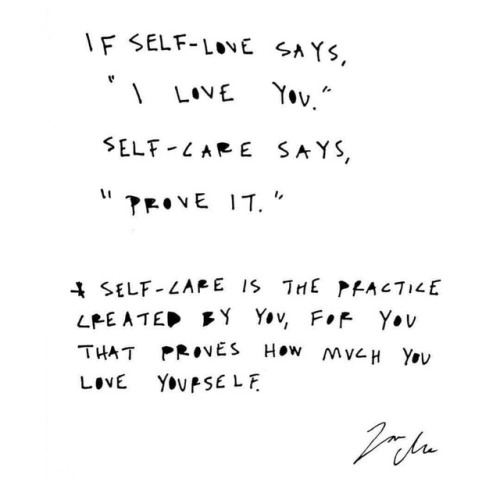 IF SELF-LOVE SAYS,
" I LOVE YOU."
SELF-CARE SAYS,
" PROVE IT. "
* SELF-CARE IS THE PRACTICE
CREATED BY YOU, FOR YOU
THAT PROVES HOW MUCH YOU
LOVE YOURSELF.